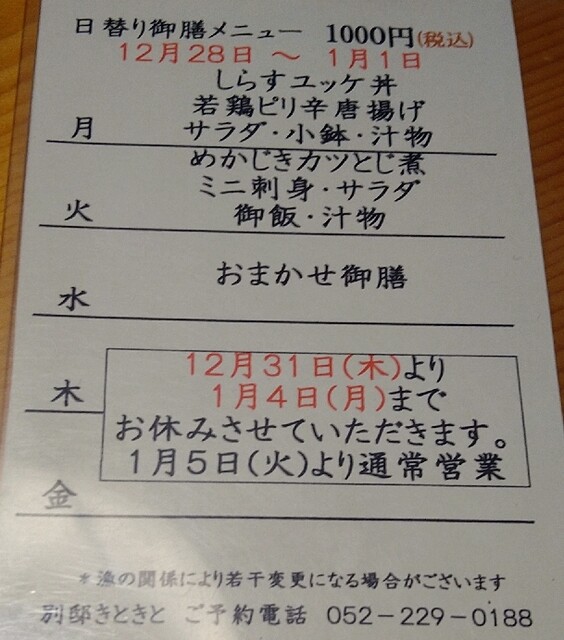 日替り御膳メニュー 1000円(税込)
12月28日 ～ 1月1日
しらすユッケ丼
若鶏ピリ辛唐揚げ
月 サラダ・小鉢・汁物
めかじきカツとじ煮
ミニ刺身・サラダ
火 御飯・汁物
おまかせ御膳
水
12月31日(木)より
木 1月4日(月)まで
お休みさせていただきます。
1月5日(火)より通常営業
金
*漁の関係により若干変更になる場合がございます
別邸きときと ご予約電話 052-229-0188